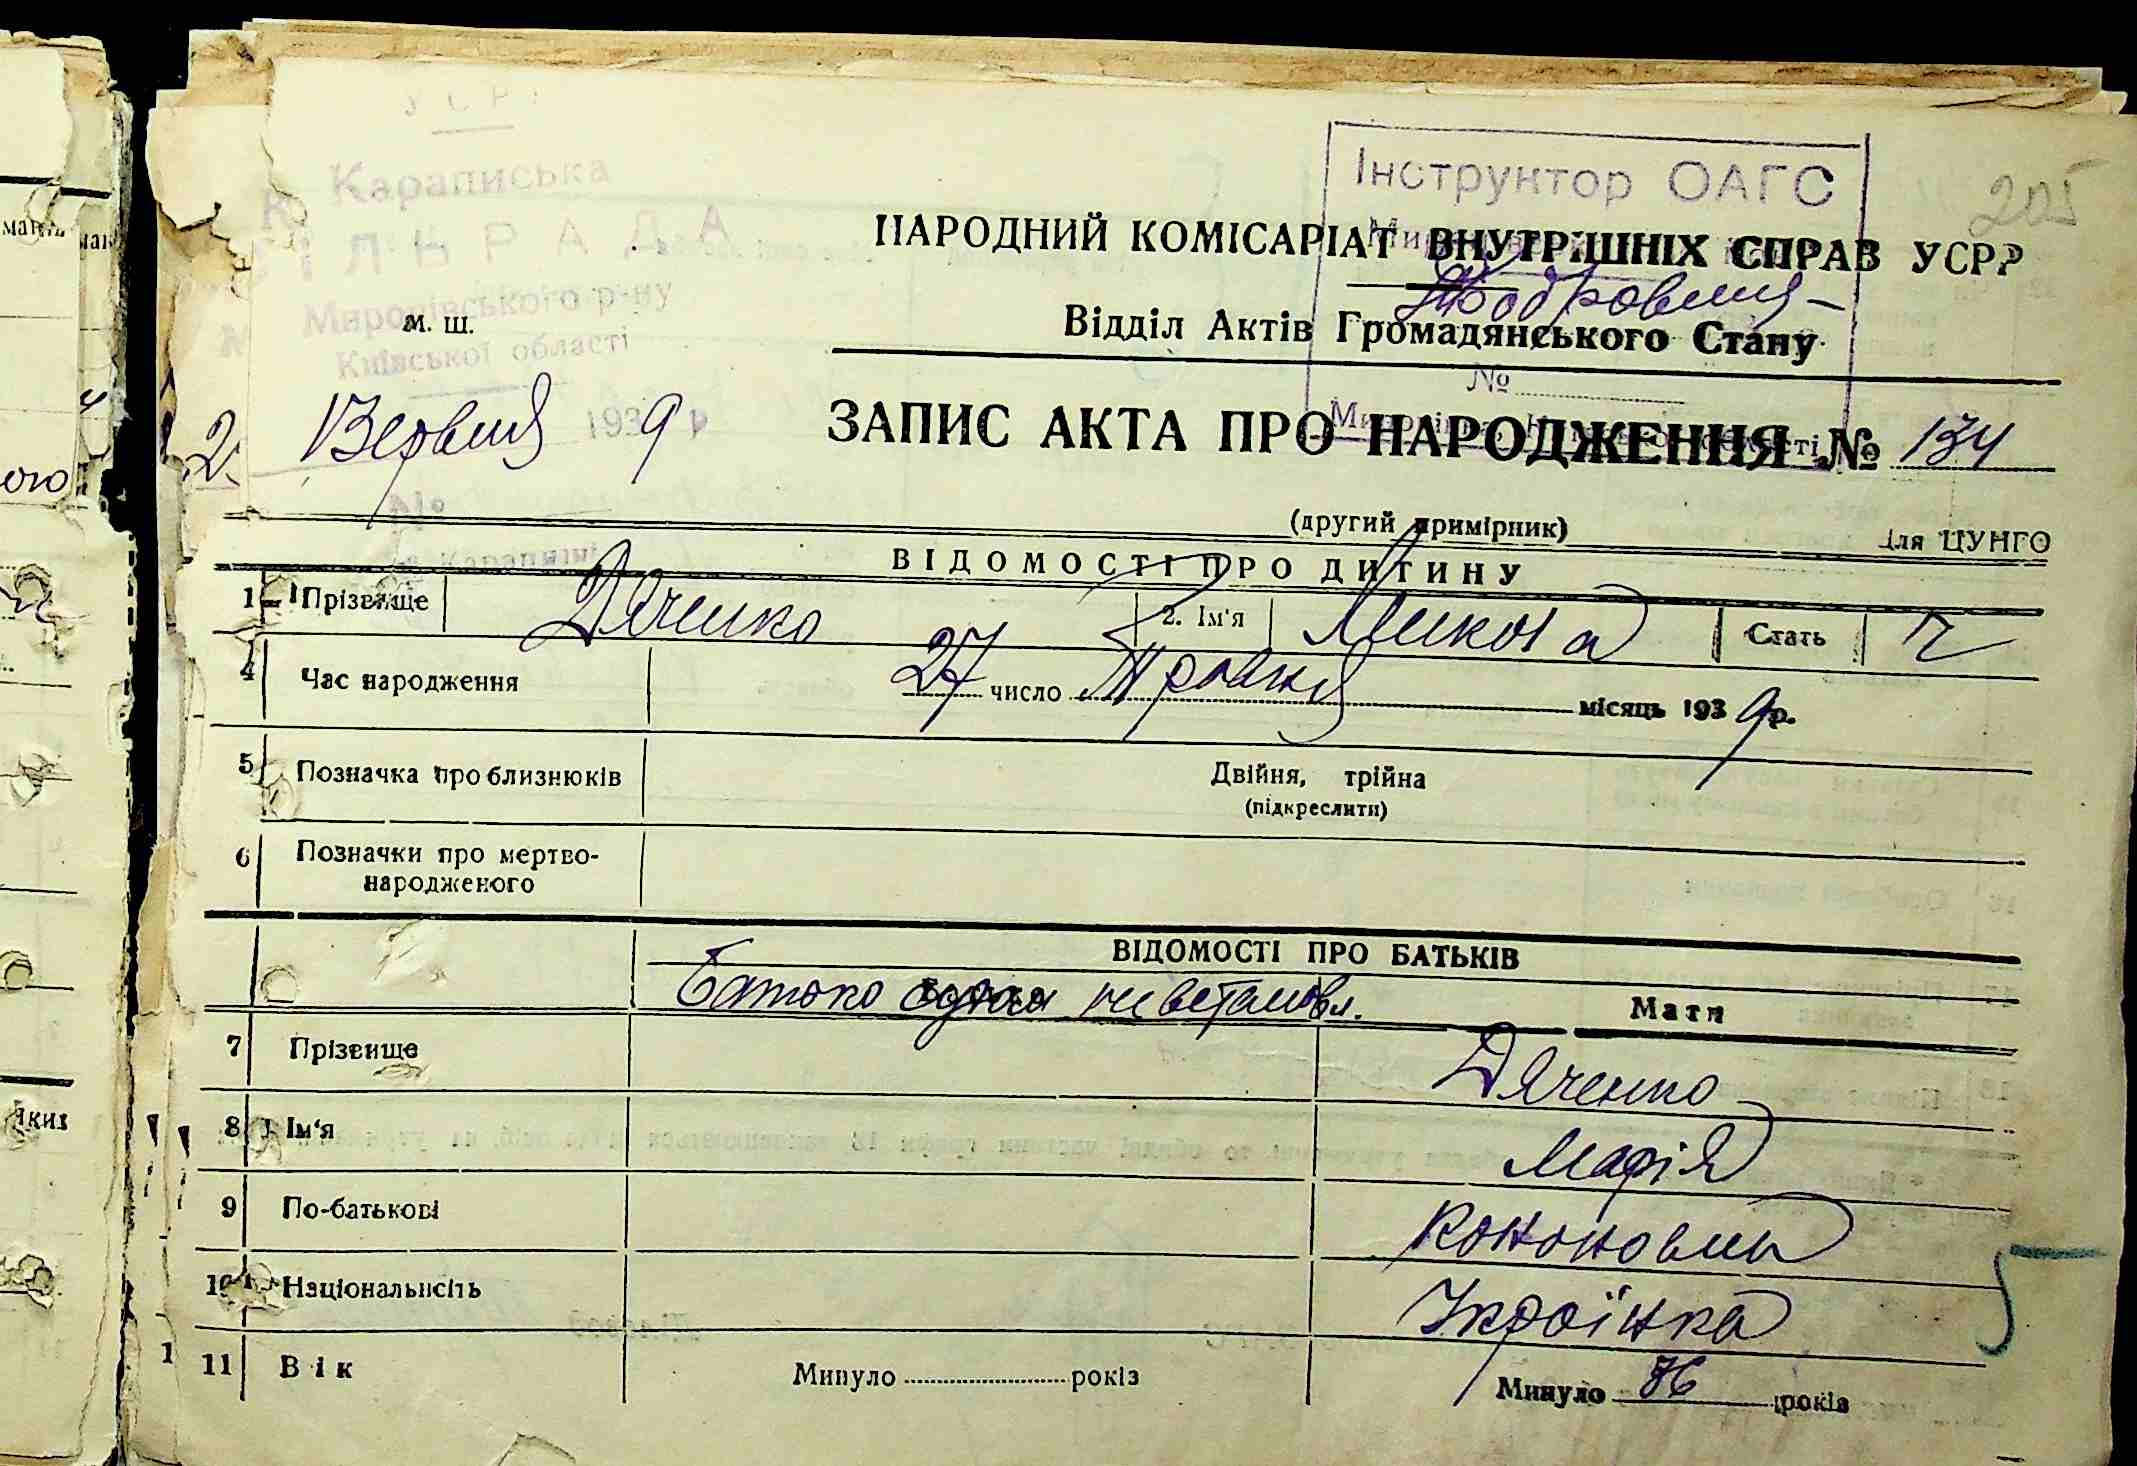 УСРР
Караписька
СІЛЬРАДА
Миронівського р-ну
м. ш.
Київської області
Червня 1939 р
№
с. Карапиші
Інструктор ОАГС
205
НАРОДНИЙ КОМІСАРІАТ ВНУТРІШНІХ СПРАВ УСРР
Відділ Актів Громадянського Стану
№
ЗАПИС АКТА ПРО НАРОДЖЕННЯ № 134
(другий примірник) Для ЦУНГО
ВІДОМОСТІ ПРО ДИТИНУ
1 Прізвище Дяченко 2. Ім'я Микола Стать ч
4 Час народження 27 число Травня місяць 1939 р.
5 Позначка про близнюків Двійня, трійна
(підкреслити)
6 Позначки про мертво-
народженого
ВІДОМОСТІ ПРО БАТЬКІВ
Батько не встановл. Мати
7 Прізвище Дяченко
8 Ім'я Марія
9 По-батькові Кононовна
10 Національність Українка
11 Вік Минуло років Минуло 36 років
5